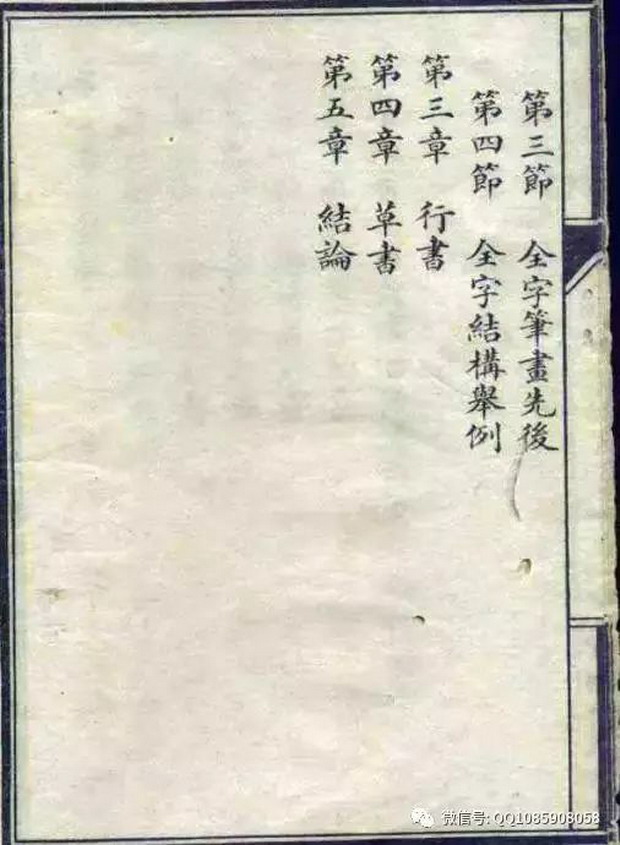 第三節 全字筆畫先後
第四節 全字結構舉例
第三章 行書
第四章 草書
第五章 結論
微信号: QQ1085908058